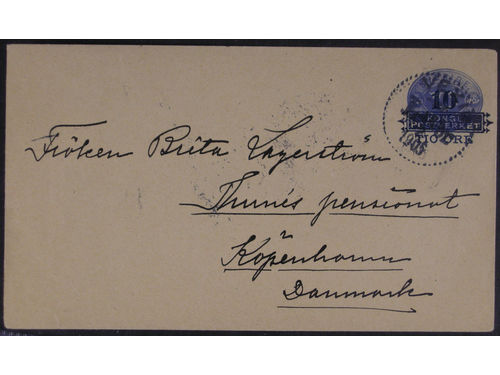 10
KONGL
POSTVERKET
TIO ÖRE
Fröken Brita Lagerström
Thunés pensionat
Köpenhamn
Danmark